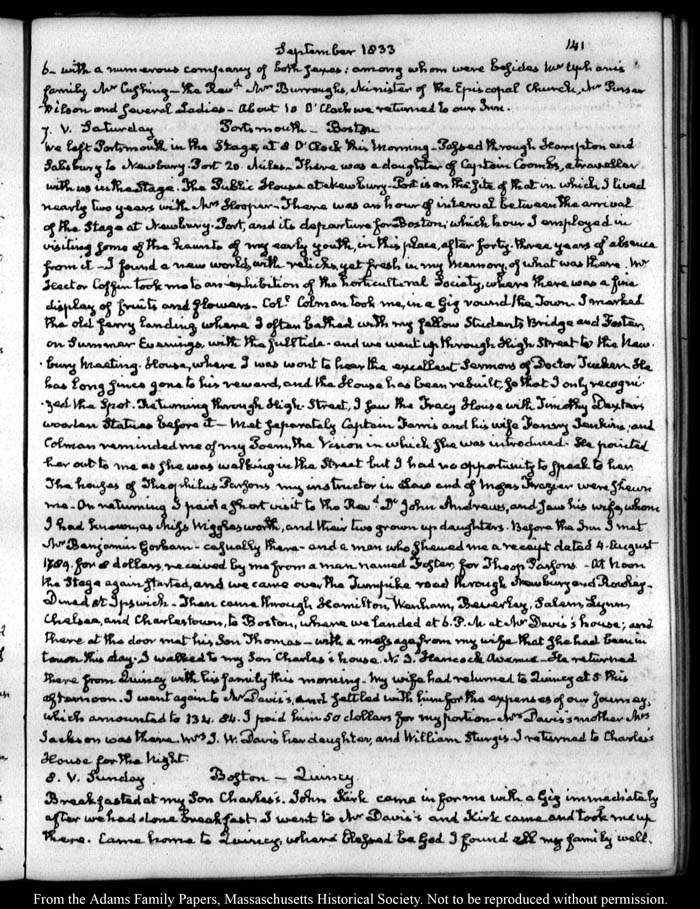 September 1833 141
6- with a numerous company of both sexes; among whom were besides Mr Upham's
family Mr Cushing- the Revd. Mr Burroughs, Minister of the Episcopal Church, Mr Purser
Wilson and several Ladies- About 10 O'Clock we returned to our Inn.
7. V. Saturday Portsmouth- Boston
We left Portsmouth in the Stage, at 8 O'Clock this Morning- Passed through Hampton and
Salisbury to Newbury-Port 20. Miles- There was a daughter of Captain Coombs, a traveller
with us in the Stage. The Public House at Newbury-Port is on the site of that in which I lived
nearly two years with Mrs Hooper- There was an hour of interval between the arrival
of the Stage at Newbury-Port, and its departure for Boston; which hour I employed in
visiting some of the haunts of my early youth, in this place, after forty-three years of absence
from it- I found a new world, with relicks, yet fresh in my memory, of what was there. Mr
Hector Coffin took me to an exhibition of the horticultural Society, where there was a fine
display of fruits and flowers- Coll. Colman took me, in a Gig round the Town- I marked
the old ferry landing where I often bathed with my fellow Students Bridge and Foster,
on Summer Evenings, with the full tide- and we went up through High Street to the New-
-bury Meeting-House, where I was wont to hear the excellent Sermons of Doctor Tucker. He
has long since gone to his reward, and the House has been rebuilt, so that I only recogni-
-zed the Spot. Returning through High-Street, I saw the Tracy House with Timothy Dexter's
wooden Statues before it- Met separately Captain Farris and his wife Fanny Jenkins, and
Colman reminded me of my Poem, the Vision in which she was introduced- He pointed
her out to me as she was walking in the Street but I had no opportunity to speak to her.
The houses of Theophilus Parsons my instructor in Law and of Moses Frazier were shewn
me- On returning I paid a short visit to the Revd. Dr John Andrews, and saw his wife, whom
I had known, as Miss Wigglesworth, and their two grown up daughters. Before the Inn I met
Mr Benjamin Gorham- casually there- and a man who shewed me a receipt dated 4. August
1789. for 8 dollars, received by me from a man named Foster, for Theop Parsons- At noon
the Stage again started, and we came over the Turnpike road through Newbury and Rowley-
Dined at Ipswich- Then came through Hamilton, Wenham, Beverley, Salem, Lynn,
Chelsea, and Charlestown, to Boston, where we landed at 6. P.M. at Mr Davis's house; and
there at the door met his Son Thomas- with a message from my wife that she had been in
town this day. I walked to my Son Charles's house N. 3. Hancock Avenue- He returned
there from Quincy with his family this morning. My wife had returned to Quincy at 5 this
afternoon. I went again to Mr Davis's, and settled with him for the expenses of our Journey,
which amounted to 134. 84. I paid him 50 dollars for my portion- Mrs Davis's mother Mrs
Jackson was there. Mrs I. W. Davis her daughter, and William Sturgis. I returned to Charles's
House for the Night.
8. V. Sunday Boston- Quincy
Breakfasted at my Son Charles's. John Kirk came in for me with a Gig immediately
after we had done breakfast. I went to Mr Davis's and Kirk came and took me up
there. Came home to Quincy, where blessed be God I found all my family well.
From the Adams Family Papers, Massachusetts Historical Society. Not to be reproduced without permission.